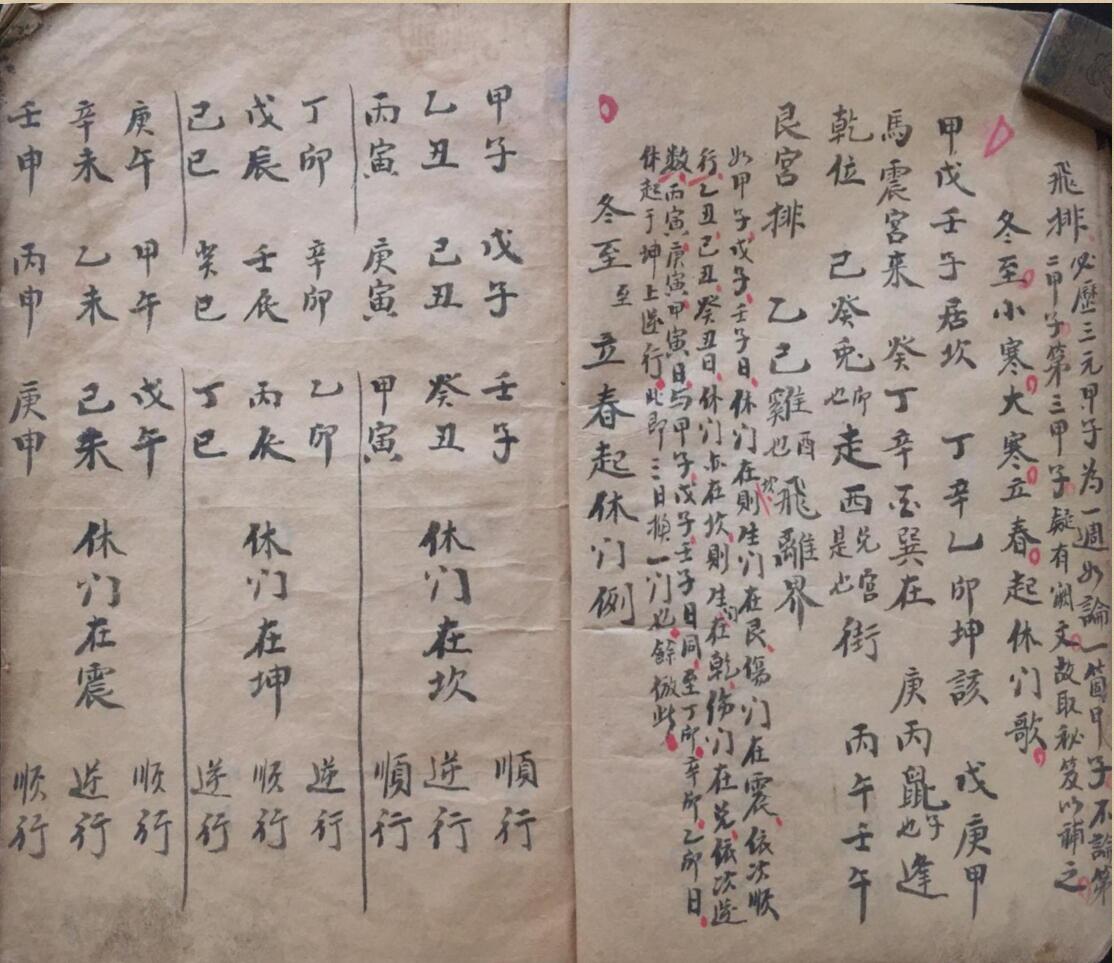 飛排必歷三元甲子為一週如論一箇甲子不論第
二甲子第三甲子疑有闕文故取秘笈以補之
冬至小寒大寒立春起休们歌
甲戊壬子居坎 丁辛乙卯坤該 戊庚甲
馬震宮来 癸丁辛酉巽在 庚丙鼠子也逢
乾位 己癸兔卯也走西兑宮是也街 丙午壬午
艮宮排 乙己雞酉也飛離界
如甲子戊子壬子日休们在坎則生们在艮傷们在震依次順
行乙丑己丑癸丑日休们亦在坎則生们在乾傷们在兑依次逆
数丙寅庚寅甲寅日与甲子戊子壬子日同至丁卯辛卯乙卯日
休起于坤上逆行此即三日換一们也餘倣此
冬至至立春起休们例
甲子 戊子 壬子 順行
乙丑 己丑 癸丑 休们在坎 逆行
丙寅 庚寅 甲寅 順行
丁卯 辛卯 乙卯 逆行
戊辰 壬辰 丙辰 休们在坤 順行
己巳 癸巳 丁巳 逆行
庚午 甲午 戊午 順行
辛未 乙未 己未 休们在震 逆行
壬申 丙申 庚申 順行